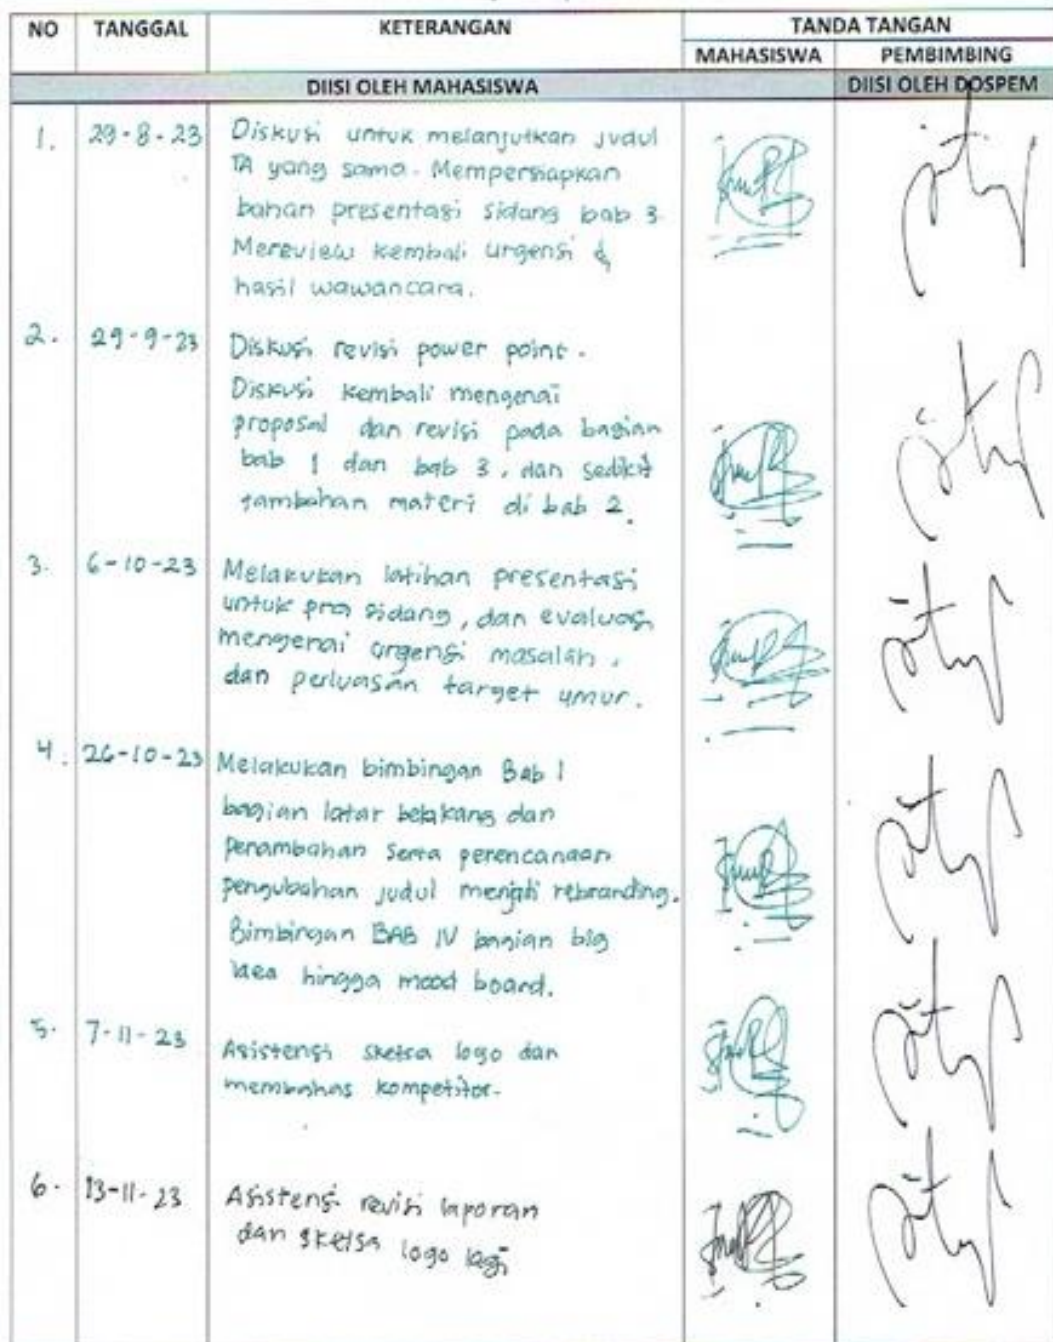 NO TANGGAL KETERANGAN TANDA TANGAN
MAHASISWA PEMBIMBING
DIISI OLEH MAHASISWA DIISI OLEH DOSPEM
1. 29-8-23 Diskusi untuk melanjutkan judul
TA yang sama. Mempersiapkan
bahan presentasi sidang bab 3
Mereview kembali urgensi &
hasil wawancara.
2. 29-9-23 Diskusi revisi power point.
Diskusi kembali mengenai
proposal dan revisi pada bagian
bab 1 dan bab 3, dan sedikit
tambahan materi di bab 2.
3. 6-10-23 Melakukan latihan presentasi
untuk pra sidang, dan evaluasi
mengenai urgensi masalah,
dan perluasan target umur.
4. 26-10-23 Melakukan bimbingan Bab 1
bagian latar belakang dan
Penambahan serta perencanaan
pengubahan judul menjadi rebranding.
Bimbingan BAB IV bagian big
idea hingga mood board.
5. 7-11-23 Asistensi sketsa logo dan
membahas kompetitor.
6. 13-11-23 Asistensi revisi laporan
dan sketsa logo lagi